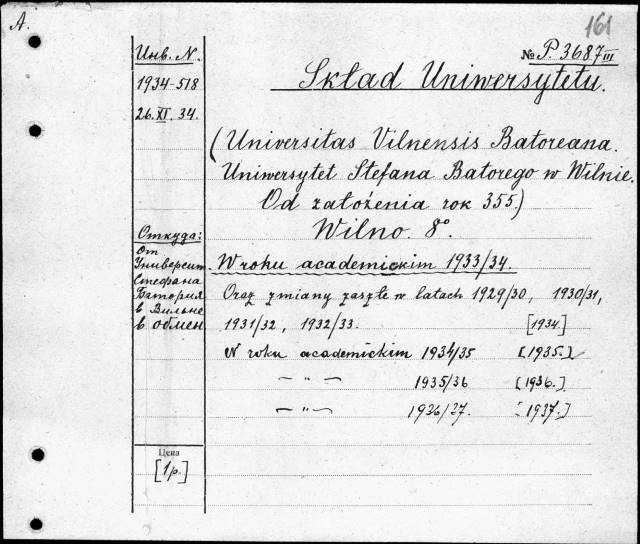 A.
161
Инв. N.
№ P. 3687 III
1934-518
Skład Uniwersytetu.
26. XI. 34.
(Universitas Vilnensis Batoreana.
Uniwersytet Stefana Batorego w Wilnie.
Od założenia rok 355.)
Wilno. 8°.
Откуда:
от
Университ.
Стефана
Батория
в Вильне
в обмен
W roku academickim 1933/34.
Oraz zmiany zaszłe w latach 1929/30, 1930/31,
1931/32, 1932/33. [1934.]
W roku academickim 1934/35 [1935.]
— " — 1935/36 [1936.]
— " — 1926/27. [1937.]
Цена
[1 р.]